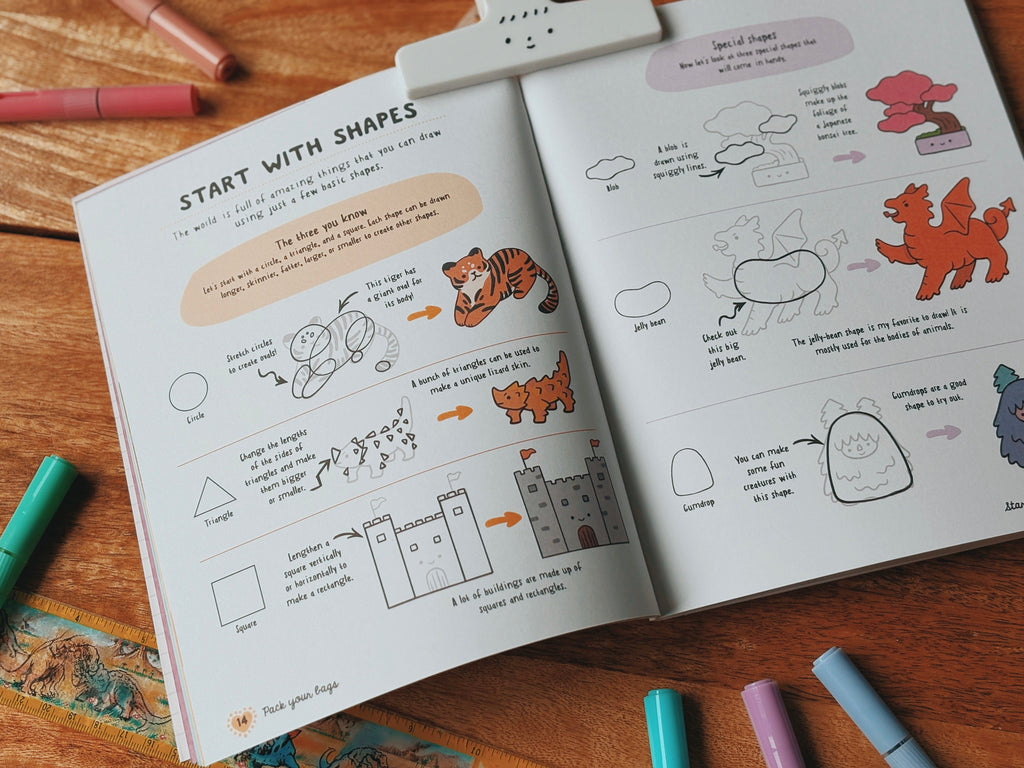 START WITH SHAPES
The world is full of amazing things that you can draw
using just a few basic shapes.
The three you know
Let's start with a circle, a triangle, and a square. Each shape can be drawn
longer, skinnier, fatter, larger, or smaller to create other shapes.
Stretch circles
to create ovals!
This tiger has
a giant oval for
its body!
Circle
Change the lengths
of the sides of
triangles and make
them bigger
or smaller.
A bunch of triangles can be used to
make a unique lizard skin.
Triangle
Lengthen a
square vertically
or horizontally to
make a rectangle.
Square
A lot of buildings are made up of
squares and rectangles.
14
Pack your bags
Special shapes
Now let's look at three special shapes that
will come in handy.
Blob
A blob is
drawn using
squiggly lines.
Squiggly blobs
make up the
foliage of
a Japanese
bonsai tree.
Jelly bean
Check out
this big
jelly bean.
The jelly-bean shape is my favorite to draw! It is
mostly used for the bodies of animals.
Gumdrop
You can make
some fun
creatures with
this shape.
Gumdrops are a good
shape to try out.